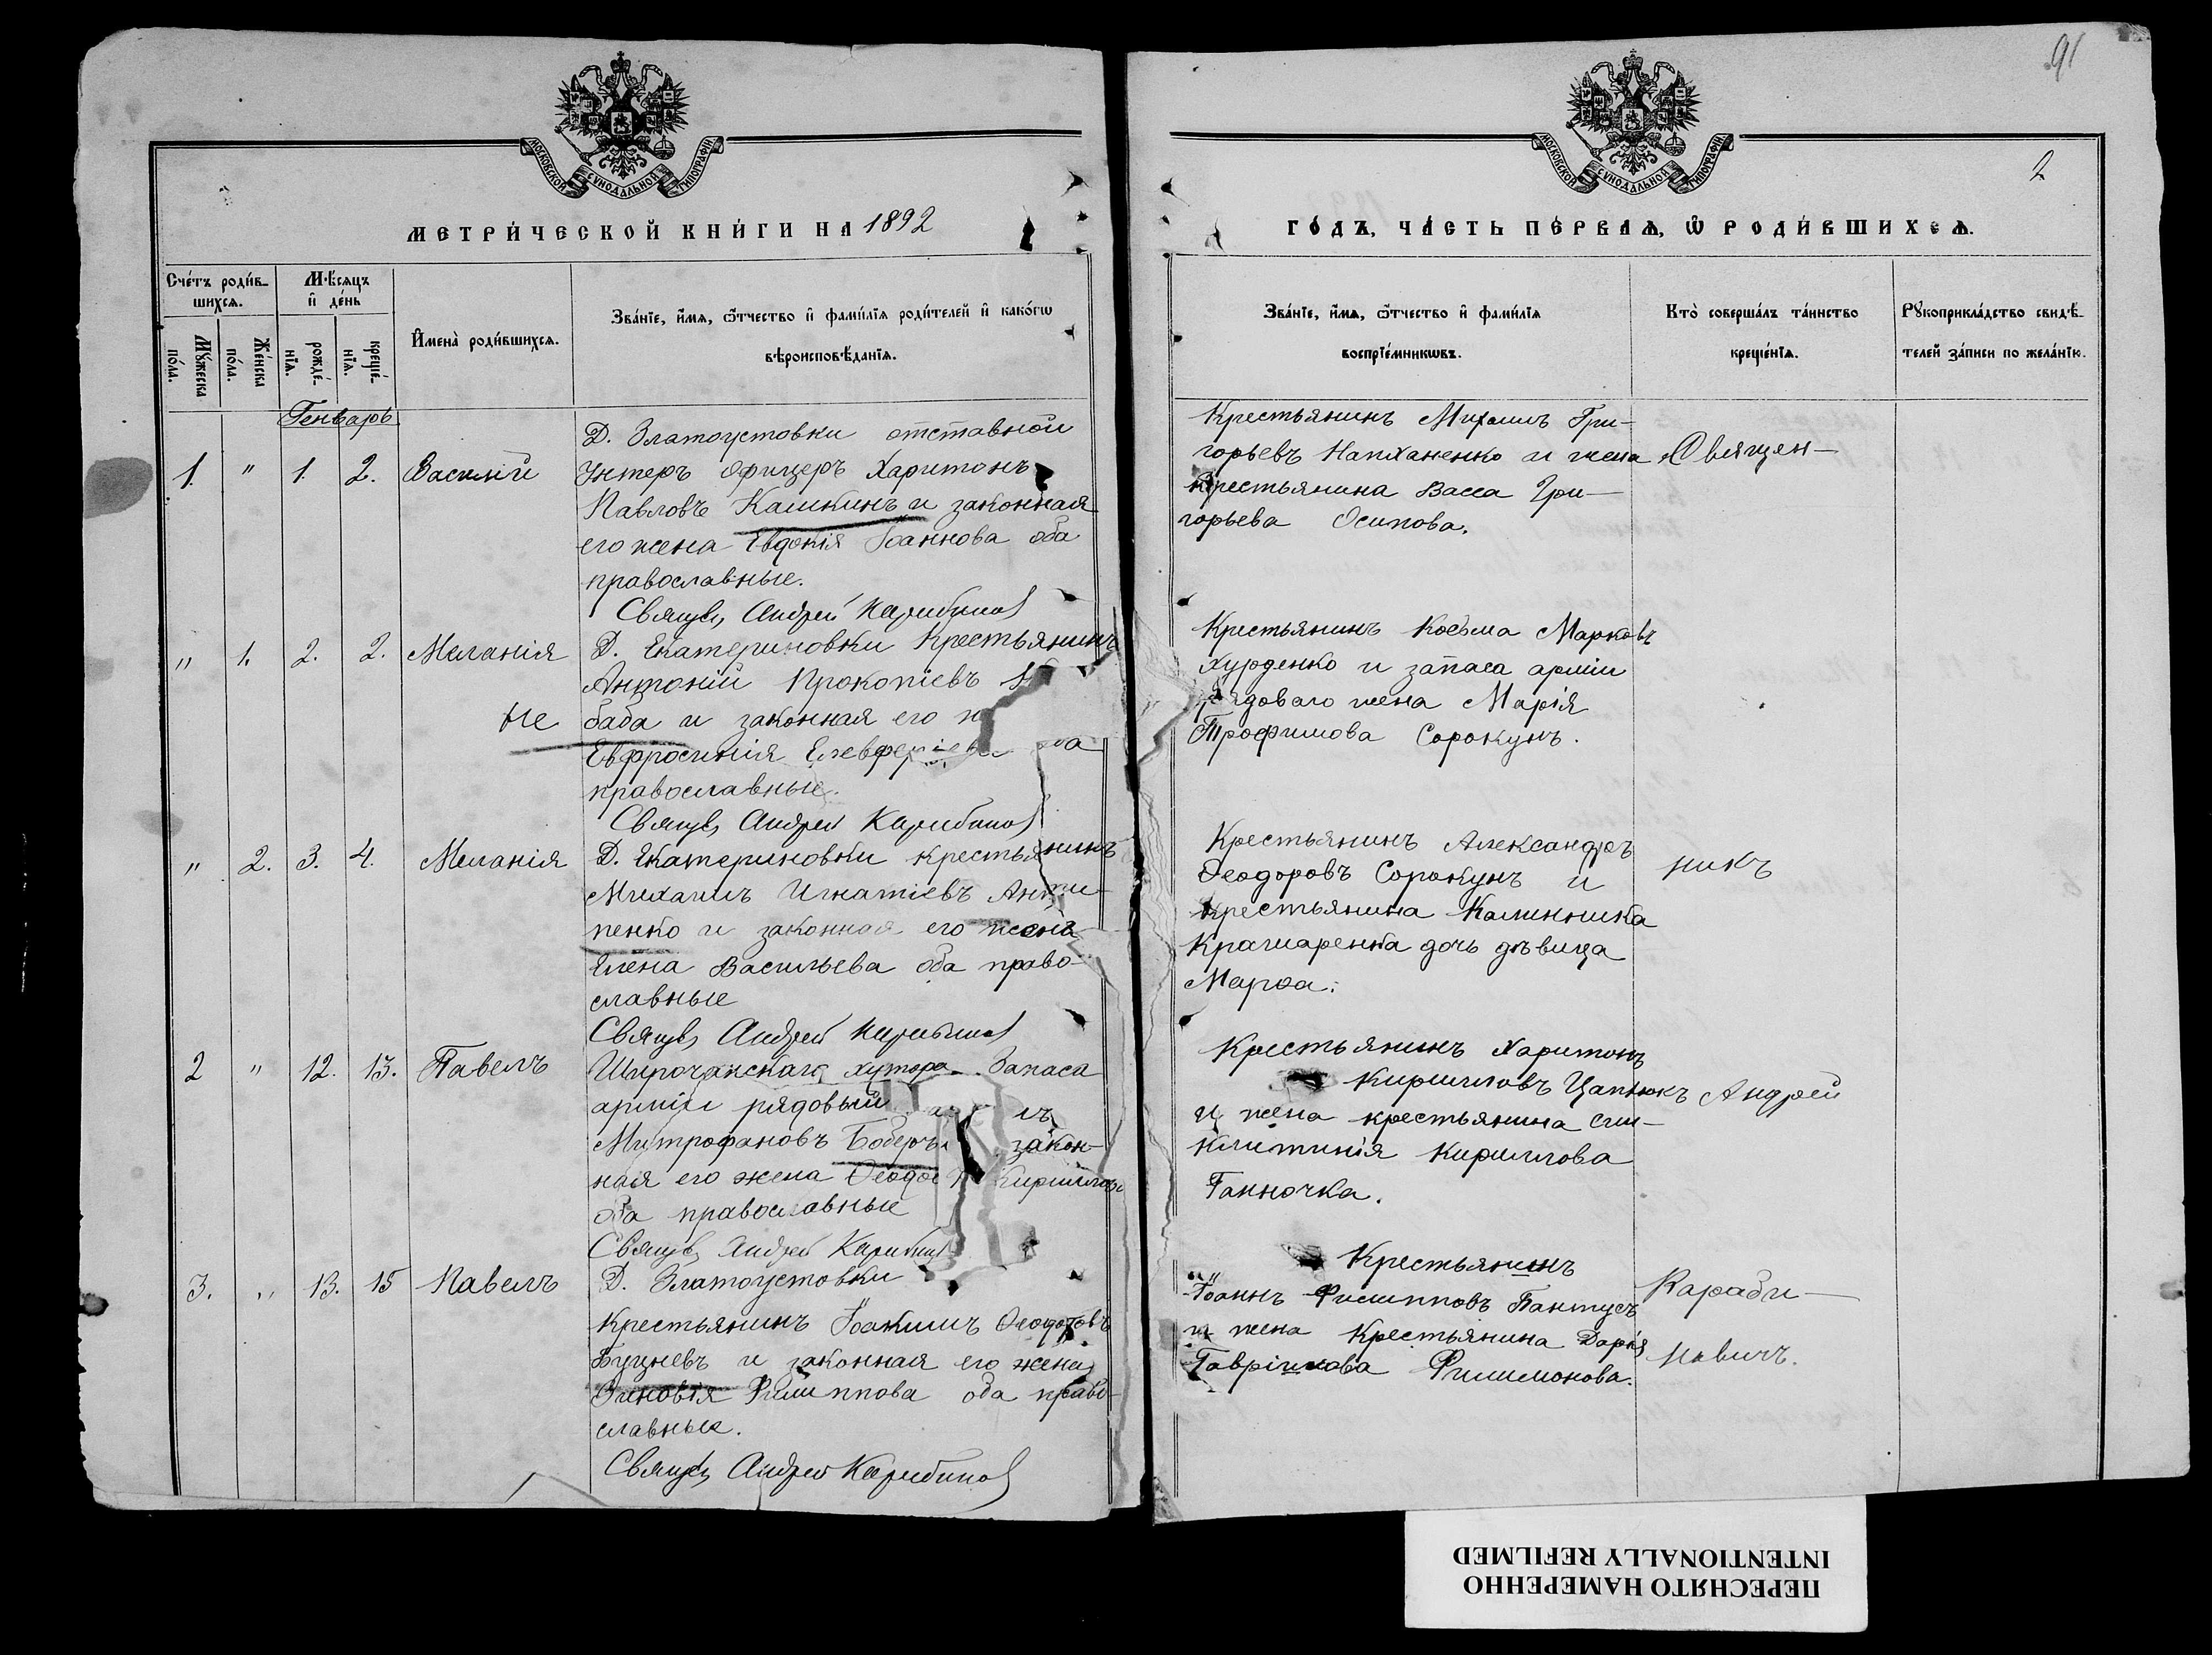 91
2
МОСКОВСКОЙ СѴНОДАЛЬНОЙ ТИПОГРАФІИ
МОСКОВСКОЙ СѴНОДАЛЬНОЙ ТИПОГРАФІИ
МЕТРИ́ЧЕСКОЙ КНИ́ГИ НА 1892
ГО́ДЪ, ЧА́СТЬ ПЕ́РВАѦ, Ѿ РОДИ́ВШИХСѦ.
Сче́тъ роди́в-
шихсѧ.
Мꙋ́жеска по́ла.
Же́нска по́ла.
Мѣ́сѧцъ
и҆ де́нь
рожде́-
нїѧ.
креще́-
нїѧ.
И҆мена̀ роди́вшихсѧ.
Зва́нїе, и҆́мѧ, ѻ҆́тчество и҆ фами́лїѧ роди́телей и҆ како́гѡ
вѣроисповѣ́данїѧ.
Зва́нїе, и҆́мѧ, ѻ҆́тчество и҆ фами́лїѧ
воспрїе́мникѡвъ.
Кто̀ соверша́лъ та́инство
креще́нїѧ.
Рꙋкоприкла́дство свидѣ́-
телей за́писи по жела́нїю.
Генварь
1. " 1. 2. Василій
Д. Златоустовки отставной
Унтеръ офицеръ Харитонъ
Павловъ Кашкинъ и законная
его жена Евдокія Іоаннова оба
православные.
Священ. Андрей Карабинов
Крестьянинъ Михаилъ Гри-
горьевъ Напханенко и жена
крестьянина Васса Гри-
горьева Осипова.
Священ-
" 1. 2. 2. Меланія
Д. Екатериновки Крестьянинъ
Антоній Прокопіевъ
Не баба и законная его
Евфросинія Елевферіева
православные.
Священ. Андрей Карабинов
Крестьянинъ Косьма Марковъ
Хурденко и запаса арміи
рядоваго жена Марія
Трофимова Сорокунъ.
" 2. 3. 4. Меланія
Д. Екатериновки крестьянинъ
Михаилъ Игнатіевъ Анти-
пенко и законная его жена
Елена Васильева оба право-
славные
Священ. Андрей Карабинов
Крестьянинъ Александръ
Ѳеодоровъ Сорокунъ и
крестьянина Калинника
Крамаренка дочь дѣвица
Марѳа.
никъ
2 " 12. 13. Павелъ
Широчанскаго хутора Запаса
арміи рядовый
Митрофановъ Боберъ закон-
ная его жена Кириллов
оба православные
Священ. Андрей Карабинов
Крестьянинъ Харитонъ
Кирилловъ Цапнюкъ
и жена крестьянина Син-
клитикія Кириллова
Ганночка.
Андрей
3. " 13. 15 Павелъ
Д. Златоустовки
Крестьянинъ Іоакимъ Ѳеодотовъ
Буцневъ и законная его жена
Зиновія Филиппова оба право-
славные.
Священ. Андрей Карабинов
Крестьянинъ
Іоаннъ Филипповъ Пантусъ
и жена Крестьянина Дарія
Гавріилова Филимонова.
Караби-
новичъ.
ПЕРЕСНЯТО НАМЕРЕННО
INTENTIONALLY REFILMED